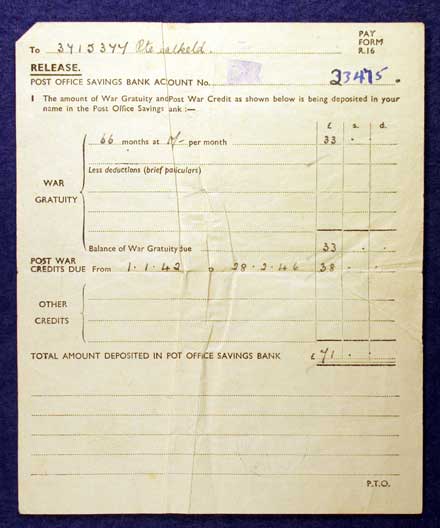 PAY
FORM
R.16
To 3715377 Pte Salkeld.
RELEASE.
POST OFFICE SAVINGS BANK ACOUNT No. 23475.
I The amount of War Gratuity andPost War Credit as shown below is being deposited in your
name in the Post Office Savings ank :—
£ s. d.
66 months at 10/- per month 33 . .
Less deductions (brief paticulars)
WAR
GRATUITY
Balance of War Gratuity due 33 . .
POST WAR
CREDITS DUE From 1.1.42 o 28.2.46 38 . .
OTHER
CREDITS
TOTAL AMOUNT DEPOSITED IN POT OFFICE SAVINGS BANK £ 71 . .
P.T.O.